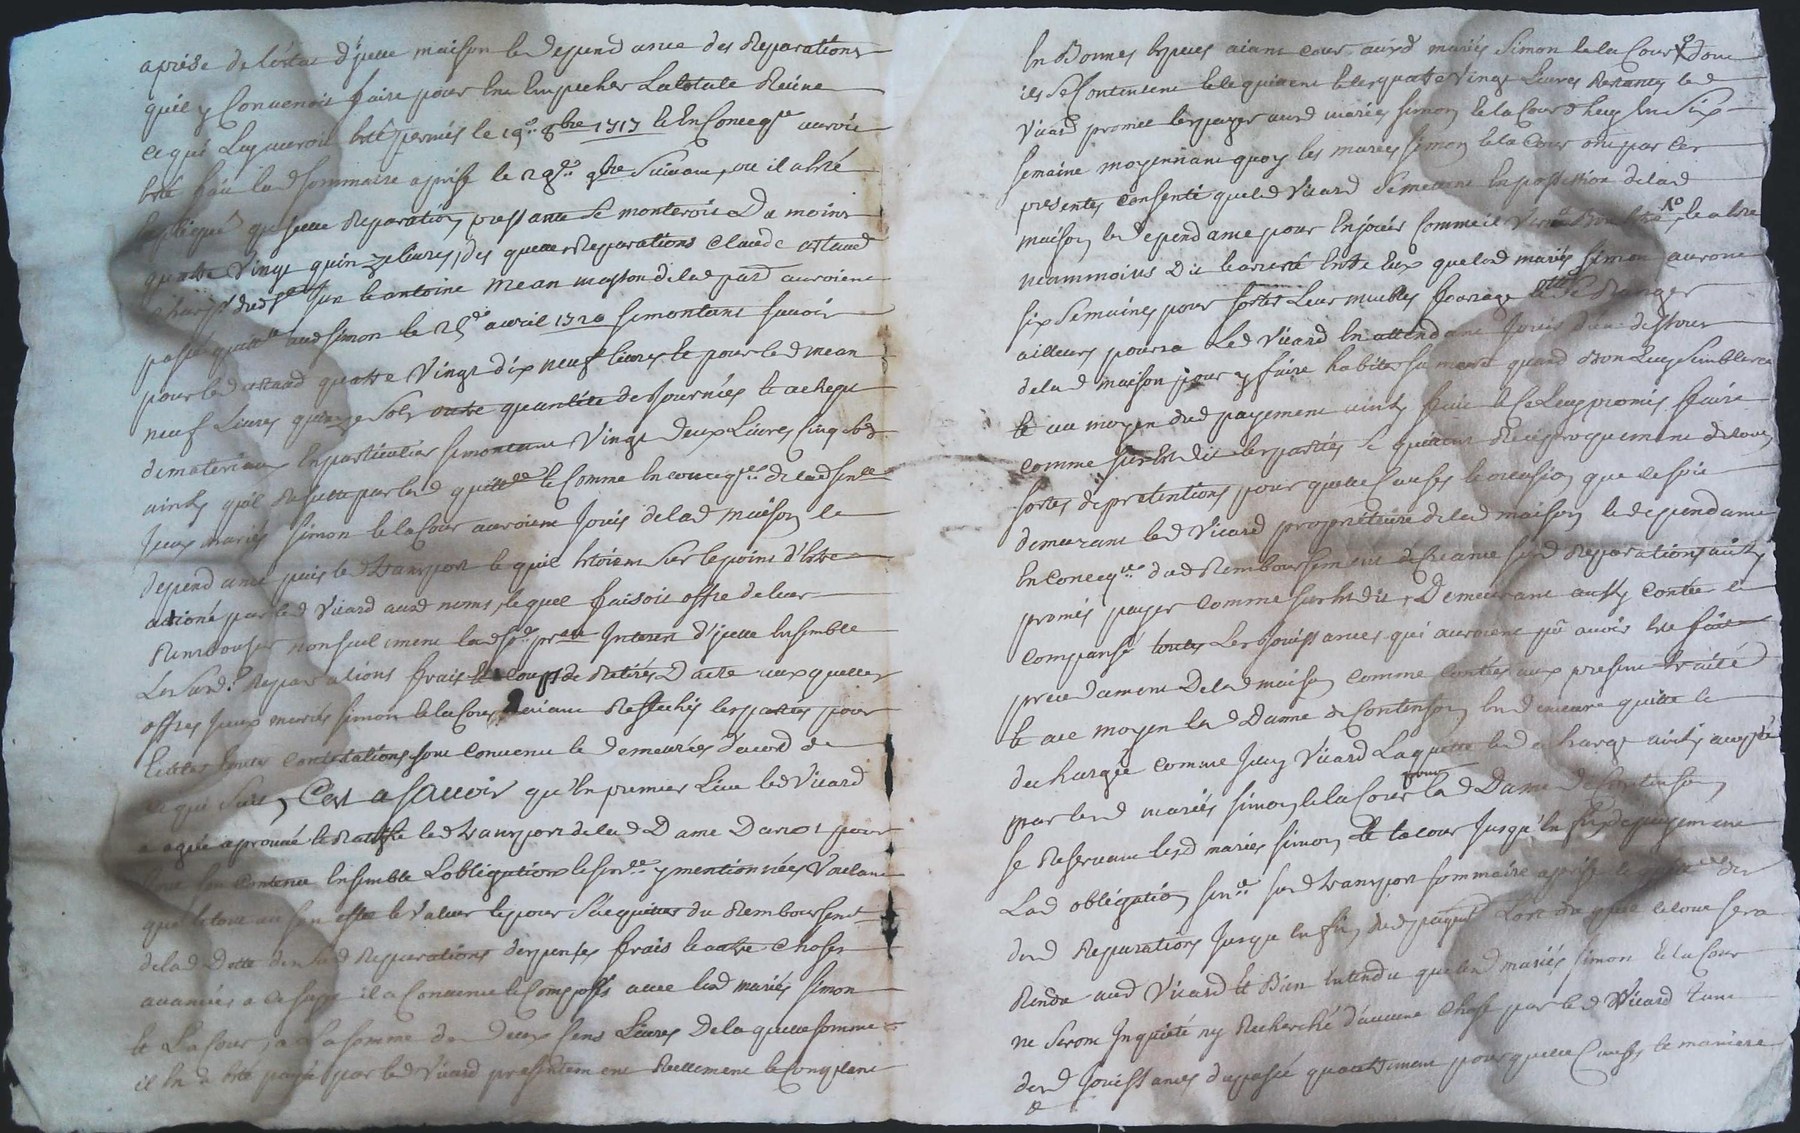 aprése de l'éstat d'jcelle maison le dependance des Reparations
quil y Convenoit faire pour En Empecher La totale Reüine
ce qui Luy auroit Eté permis le 19e 8bre 1717 et En Conceqce auroit
Eté faict lad sommaire aprise le 29e 9bre Suivant, ou il a Eté
que jcelle Reparation pressante Se monteroit a d moins
quatre Vingt quinze livres, des quelles Reparations Claude astaud
charpt dud et antoine mean masson delad part auroient
passé quittce aud simon le 25e avril 1720 Se montant savoir
pour led astaud quatre Vingt dix neuf livres et pour led mean
neuf Livres quinze Sols outre quantité de Journées et achept
de materiaux En particulier Se montant Vingt deux Livres Cinq sols
ainsy quil Resulte par lad quittce et Comme En conceqce delad sence
jceux mariés Simon et la Cour auroient Jouis delad maison et
dependance puis led transport et quil Etoient Sur le point d'Estre
actioné par led Vicard aud noms, lequel faisoit offre de leur
Rembourser non seulement lad Interest d'jcelle Ensemble
Les Reparations frais et coups de Retirés D'acte aux quelles
offres jceux mariés Simon et la Cour, aiant Reflechis les parties pour
Eviter toutes contestations, sont convenu et demeurées d'acord de
ce qui Suit, C'est a sçavoir qu'En premier Lieu led Vicard
a agréé aprouvé et Ratiffié led transport de lad Dame Duret pour
tout Son contenu Ensemble L'obligation et Sence y mentionnées Voulant
que le tout aie Son effet et Valeur et pour S'acquitter du Remboursemt
delad Dette desd Reparations despenses frais et autre Choses
avancées a ce sujet il a Convenu et Composés avec lesd mariés Simon
et La Cour, a La somme de Deux Cens Livres De laquelle somme
il En a Eté payé par led Vicard presentement Réellement et Comptant
En Bonnes Especes aiant cour ausd mariés Simon et la Cour dont
ils Se Contentent et le quittent et les quatre Vingt Livres Restantes led
Vicard promet les payer ausd mariés Simon et la Cour d'huy En Six
Semaine moyennant quoy les mariés Simon et la Cour ont par ces
presentes consenti que led Vicard Se mettent En possession delad
maison et dependance pour En jouir Comme il Verra Bon Estre, et a Eté
neammoins Dit et aresté Entre Eux que lesd mariés Simon auront
Six Semaines pour sortir Leur meubles fourage et Se Ranger
ailleurs pourra Led Vicard En attendant Jouir d'un
delad maison pour y faire habiter sa mere quand Bon Luy Semblera
et au moyen dud payement ainsy fait et Ce Luy promis faire
comme sus Est dit les parties Se quittent Reciproquement de toutes
sortes de pretentions pour quelle Causes et occasion que ce soit
demeurant led Vicard proprietaire delad maison et dependance
En conceqce dud Remboursement de Creance susd Reparations ainsy
promis payer comme sus Est dit, Demeurant aussy contée et
compansé toutes Les Jouissances qui auroient pû avoir Eté fait
precedament Delad maison comme contées aux present traité
et au moyen lad Dame de Contenson En demeure quitte et
dechargée comme jceluy Vicard La quitte et decharge ainsy acepté
par lesd mariés Simon, et la Cour pour lad Dame de Contenson
se Reservant lesd mariés Simon et la Cour Jusqu'En fin de payement
Lad obligation sence susd transport sommaire aprise et quittce des
dites Reparations Jusque En fin dud payemt Lors du quel le tout sera
Rendu aud Vicard et Bien Entendu que lesd mariés Simon et la Cour
ne Seront Inquieté ny Recherché d'aucune Chose par led Vicard tant
desd Jouissances du passé quautrement pour quelle Causes et maniere